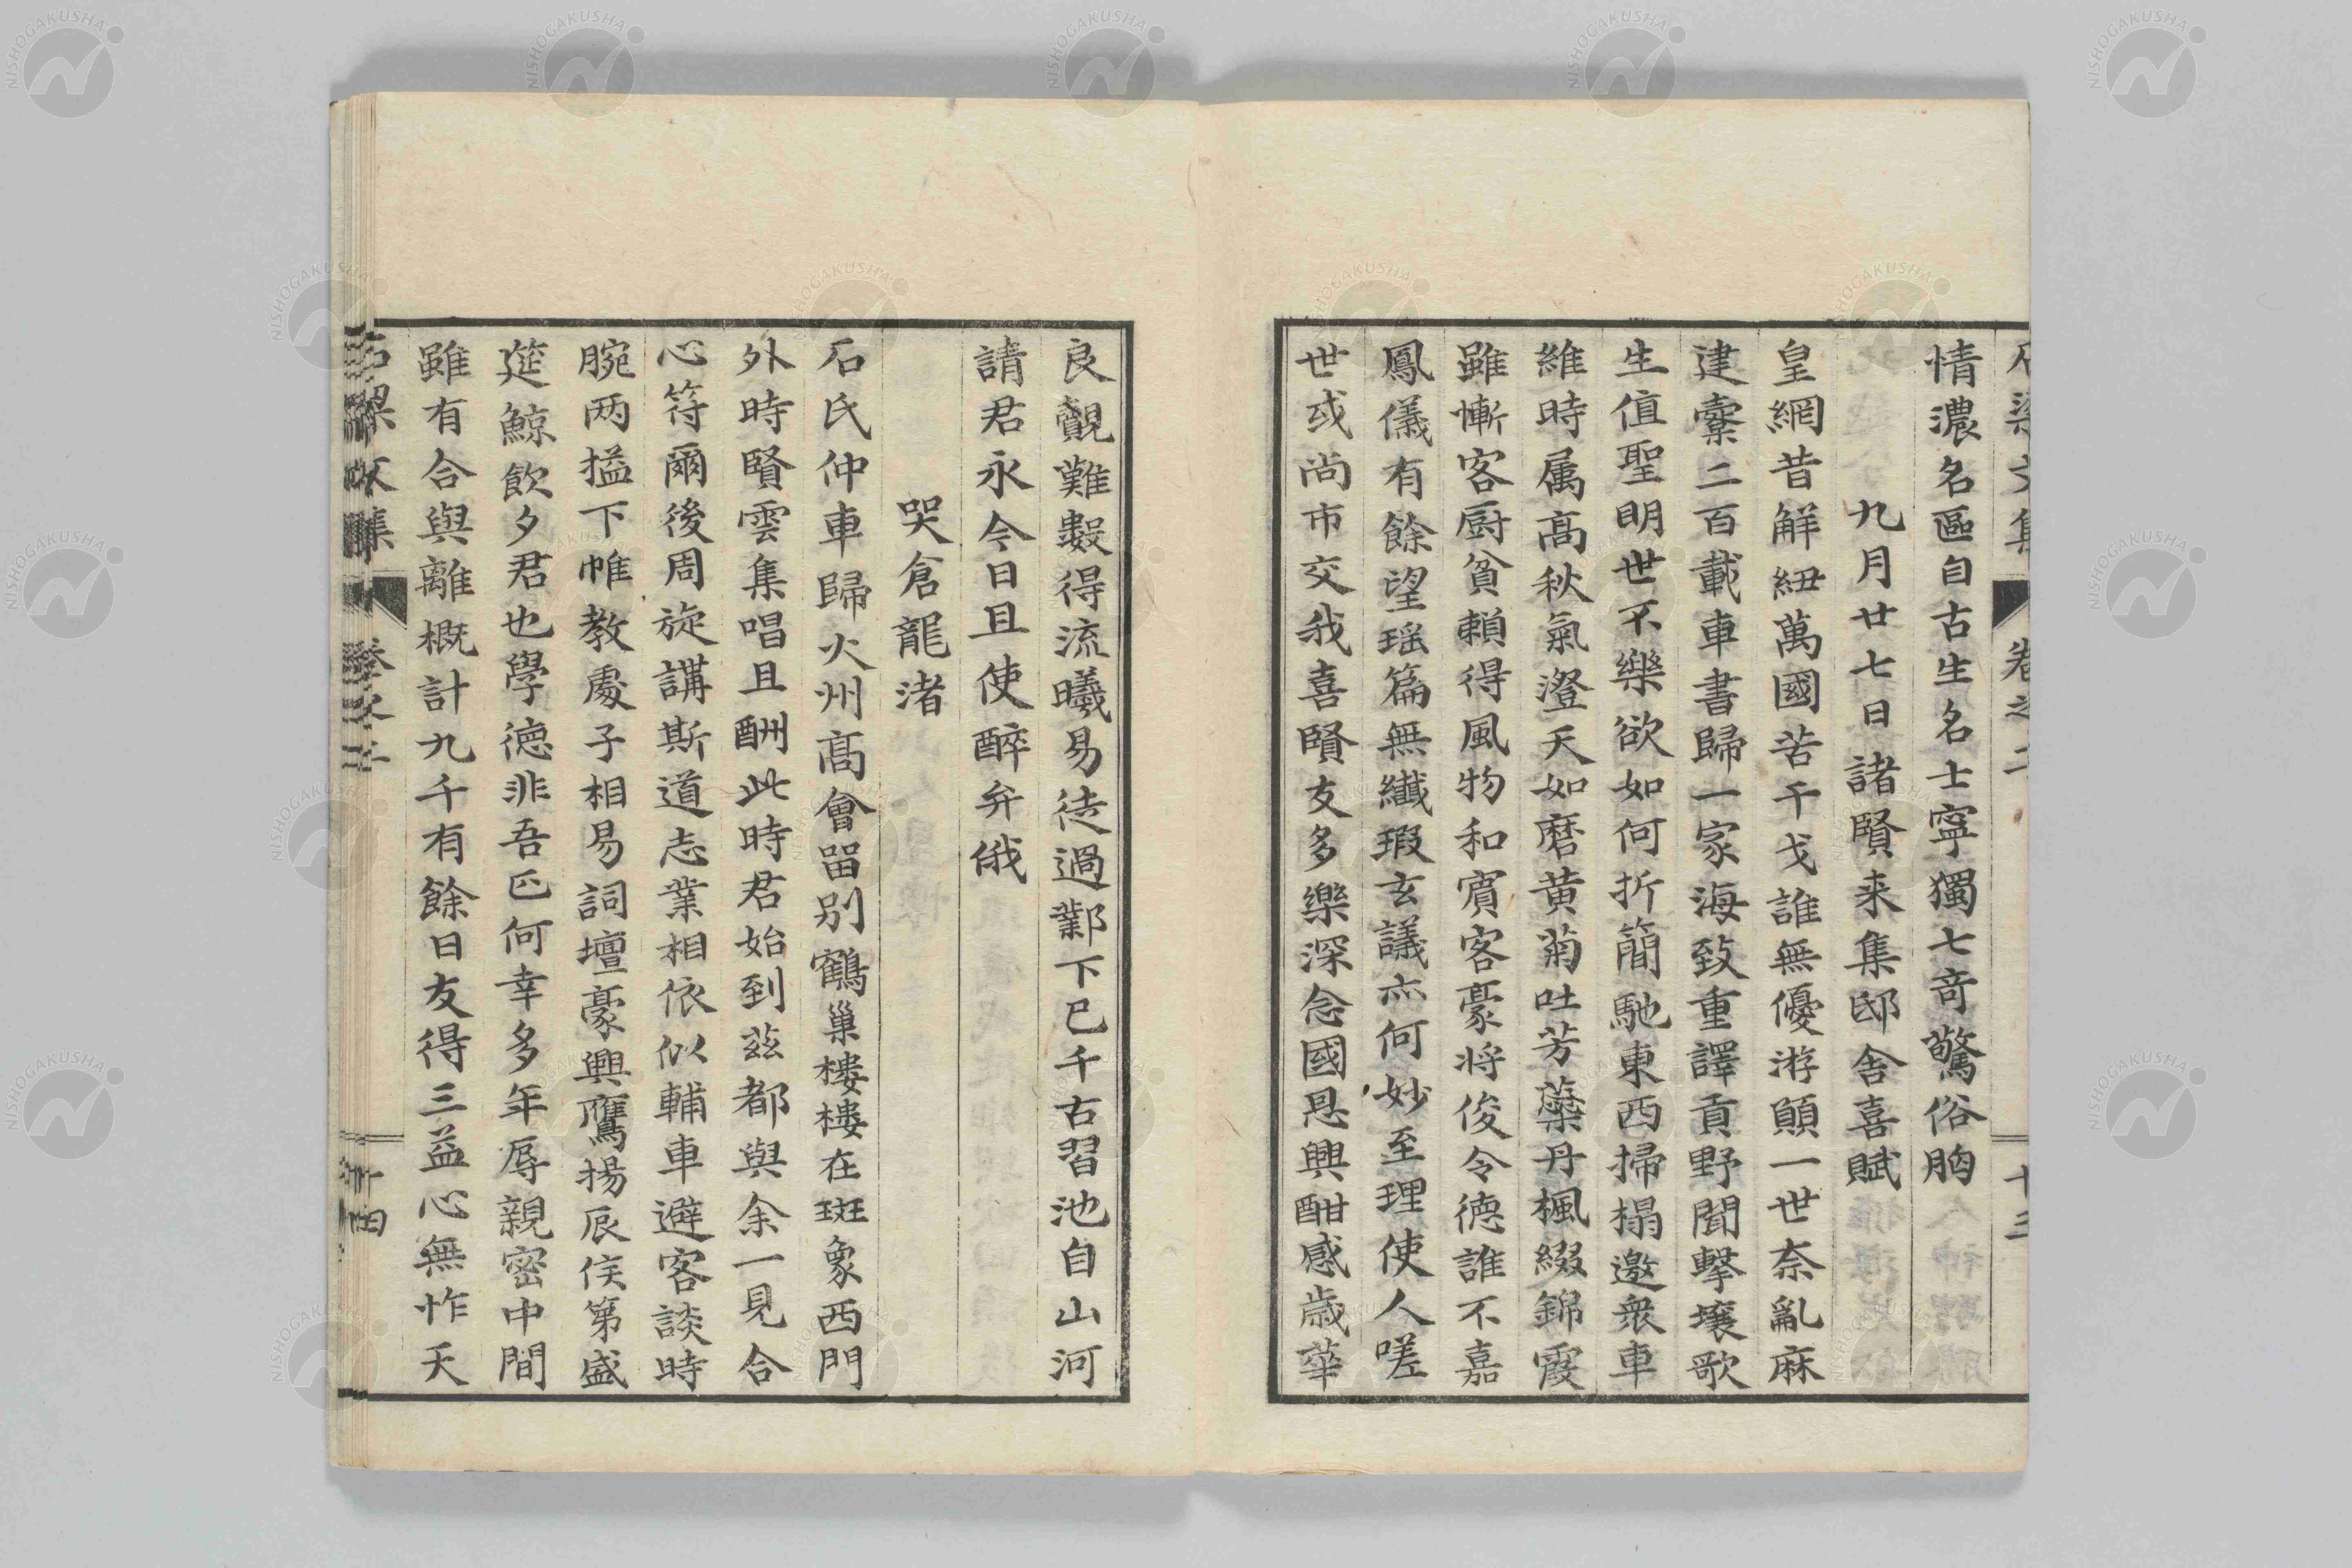 情濃名區自古生名士寧獨七奇驚俗胸
九月廿七日諸賢来集邸舎喜賦
皇網昔解紐萬國苦干戈誰無優游願一世奈亂麻
建櫜二百載車書歸一家海致重譯貢野聞擊壤歌
生值聖明世不樂欲如何折簡馳東西掃榻邀衆車
維時属髙秋氣澄天如磨黄菊吐芳蘂丹楓綴錦霞
雖慚客厨貧賴得風物和賓客豪将俊令德誰不嘉
鳳儀有餘望瑶篇無纖瑕玄議亦何妙至理使人嗟
世或尚市交我喜賢友多樂深念國恩興酣感歳華
良覿難數得流曦易徒過鄴下已千古習池自山河
請君永今日且使醉弁俄
哭倉龍渚
石氏仲車歸火州髙會畄别鶴巢樓樓在斑象西門
外時賢雲集唱且酬此時君始到茲都與余一見合
心符爾後周旋講斯道志業相依似輔車避客談時
腕两搤下帷教處子相易詞壇豪興鷹揚辰侯第盛
筵鯨飲夕君也學德非吾匹何幸多年辱親密中間
雖有合與離概計九千有餘日友得三益心無怍天
石梁文集 卷之二 十三
石梁文集 卷之二 十四
NISHOGAKUSHA